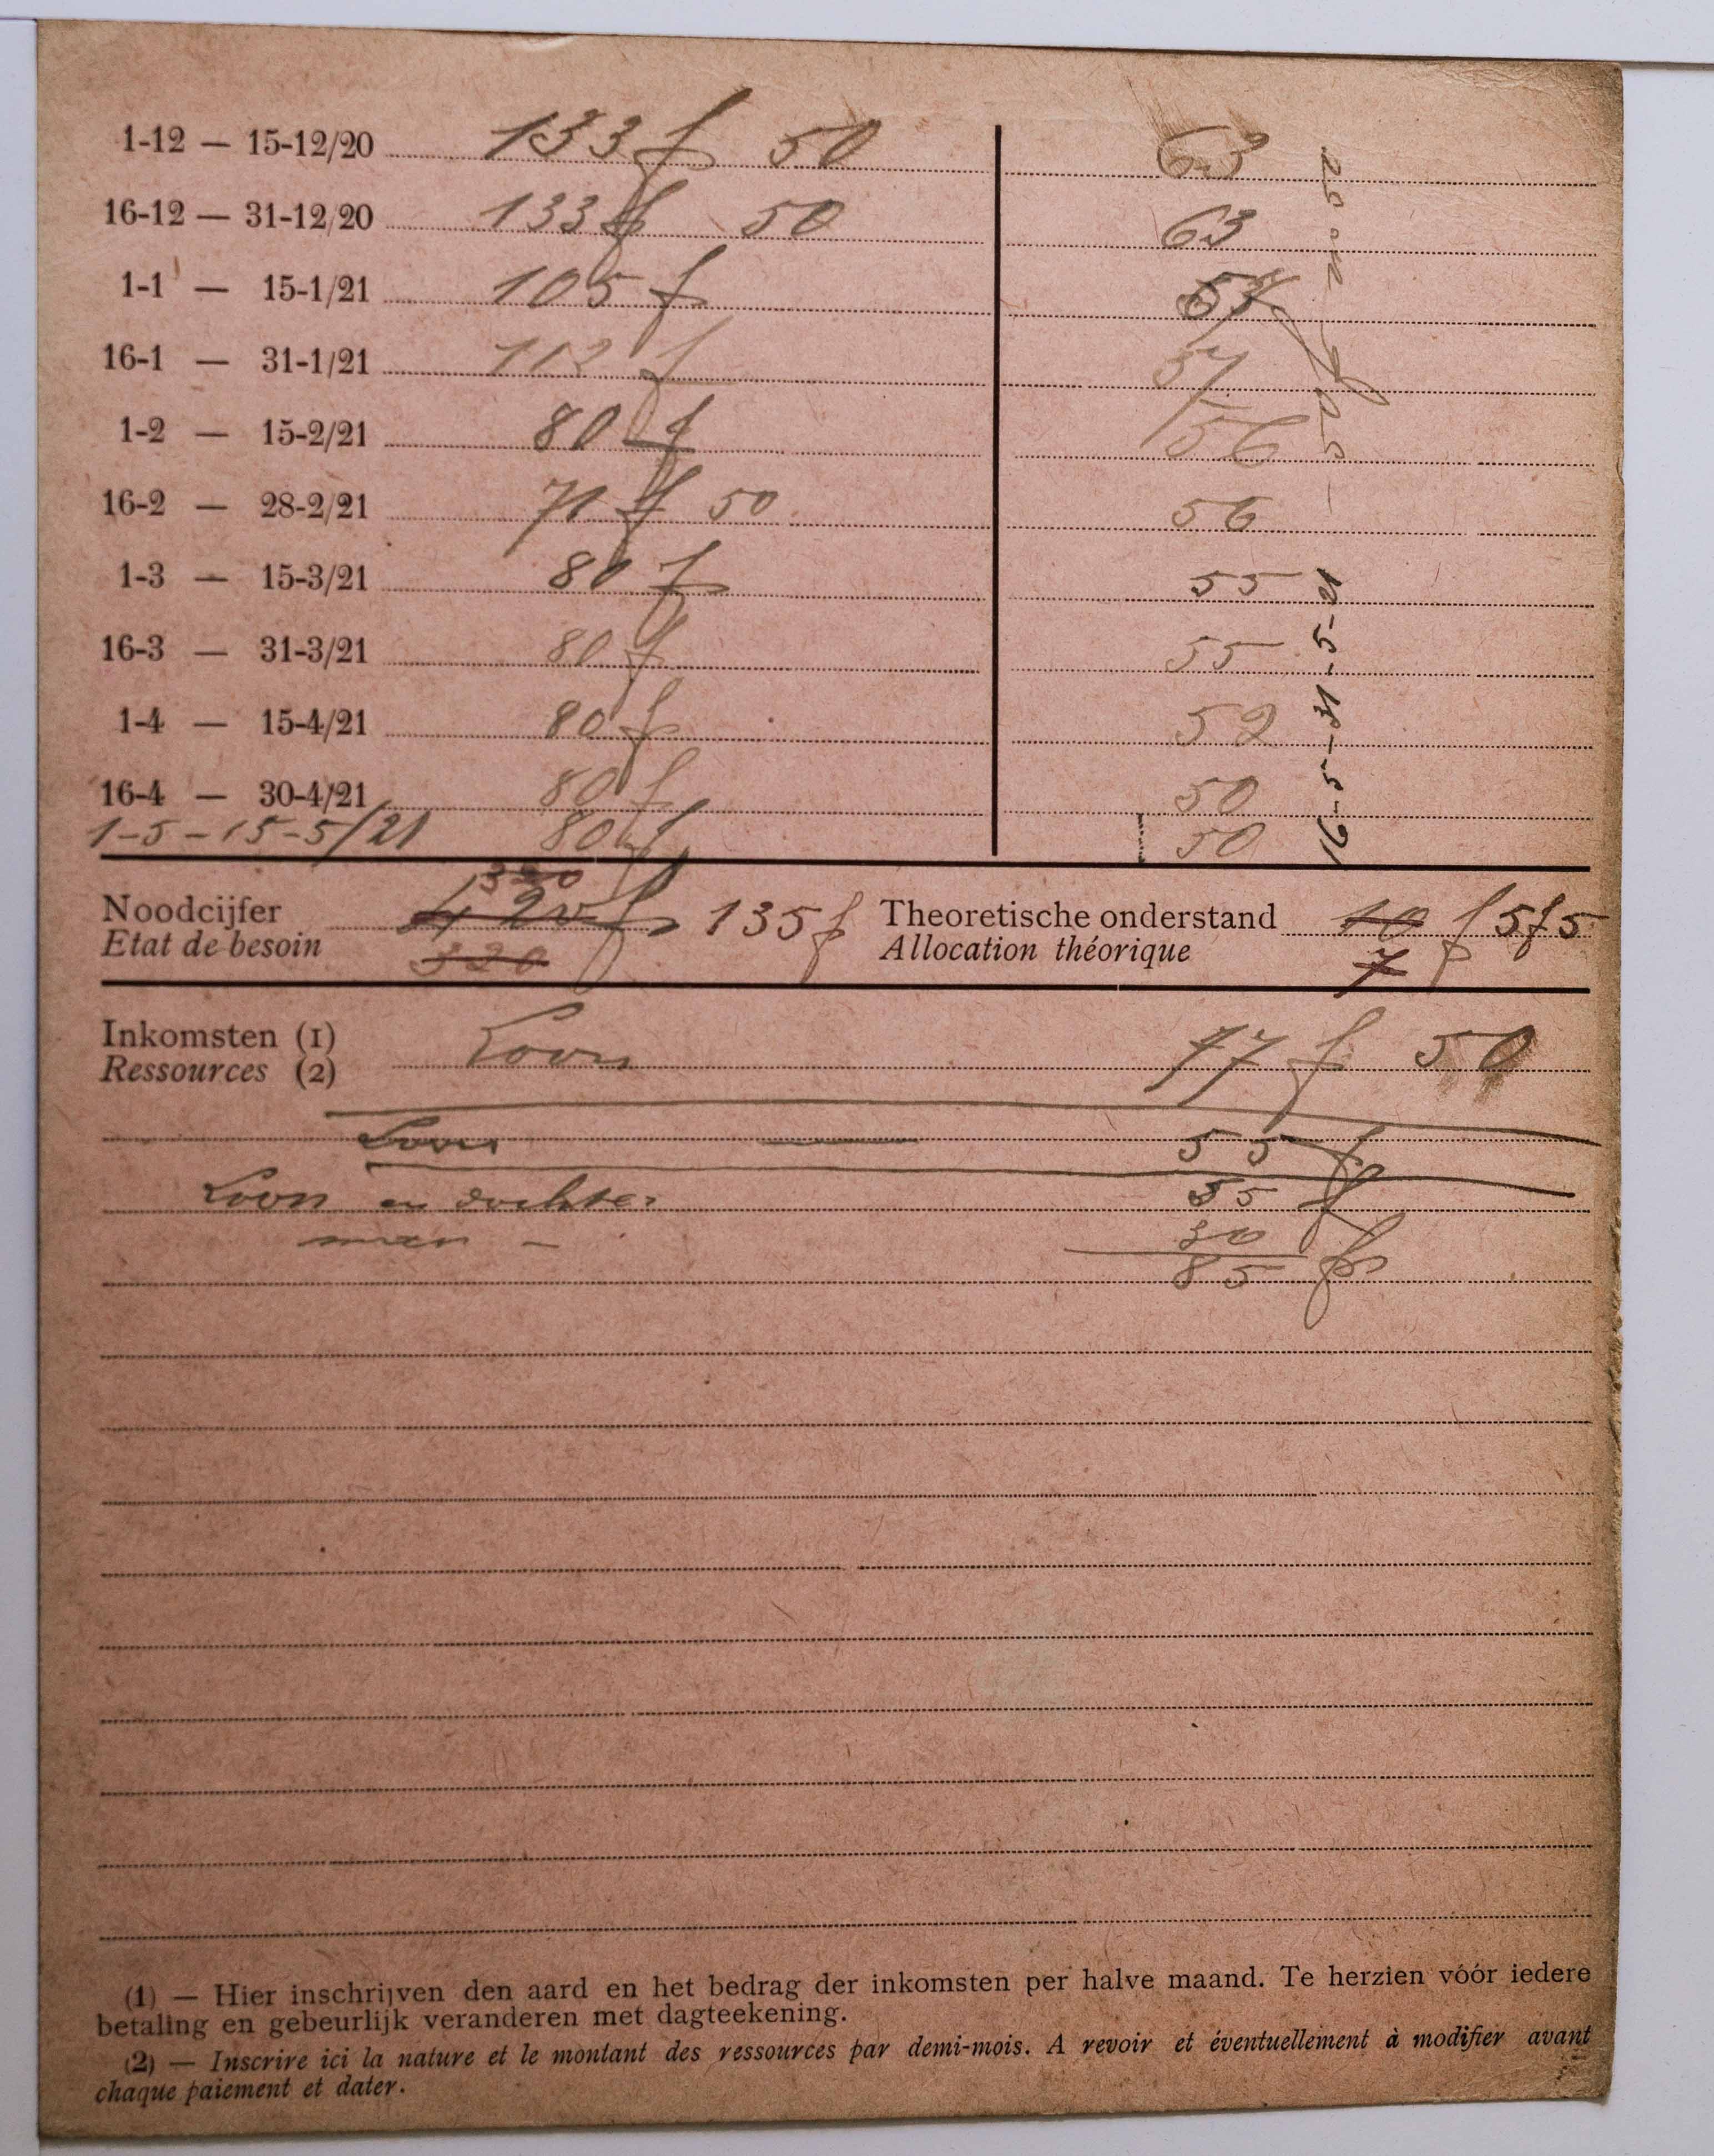 1-12 — 15-12/20 133 f 50 63
16-12 — 31-12/20 133 f 50 63
1-1 — 15-1/21 105 f 57
16-1 — 31-1/21 112 f 57
1-2 — 15-2/21 80 f 56
16-2 — 28-2/21 71 f 50 56
1-3 — 15-3/21 80 f 55
16-3 — 31-3/21 80 f 55
1-4 — 15-4/21 80 f 52
16-4 — 30-4/21 80 f 50
1-5-15-5/21 80 f 50
16-5-31-5-21
320
Noodcijfer 420 f 135 f Theoretische onderstand 10 f 5f5
Etat de besoin 320 Allocation théorique 7
Inkomsten (1) Loon 77 f 50
Ressources (2)
Loon 55 f
Loon en dochter 55 f
30
85 f
(1) — Hier inschrijven den aard en het bedrag der inkomsten per halve maand. Te herzien vóór iedere
betaling en gebeurlijk veranderen met dagteekening.
(2) — Inscrire ici la nature et le montant des ressources par demi-mois. A revoir et éventuellement à modifier avant
chaque paiement et dater.